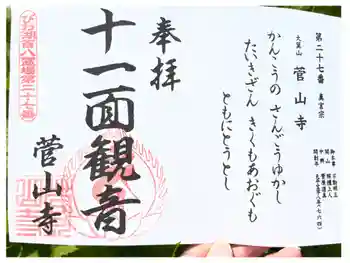 第二十七番 真言宗
大箕山 菅山寺
かんこうの さんごうゆかし
たいきざん きくもあおぐも
ともにとうとし
奉拝
十一面観音
菅山寺
びわ湖百八霊場第二十七番